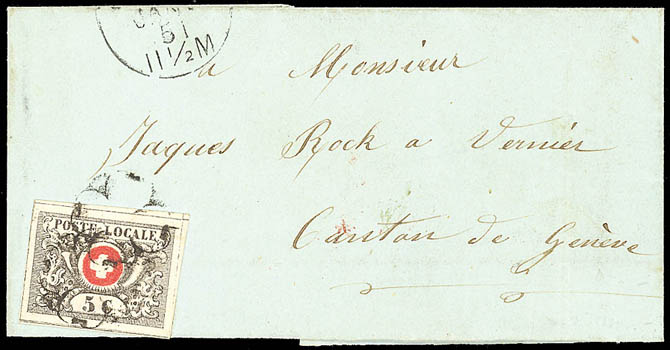 JAN
51
11½M
a Monsieur
Jaques Rock a Vernier
Canton de Genève
POSTE LOCALE
5 C